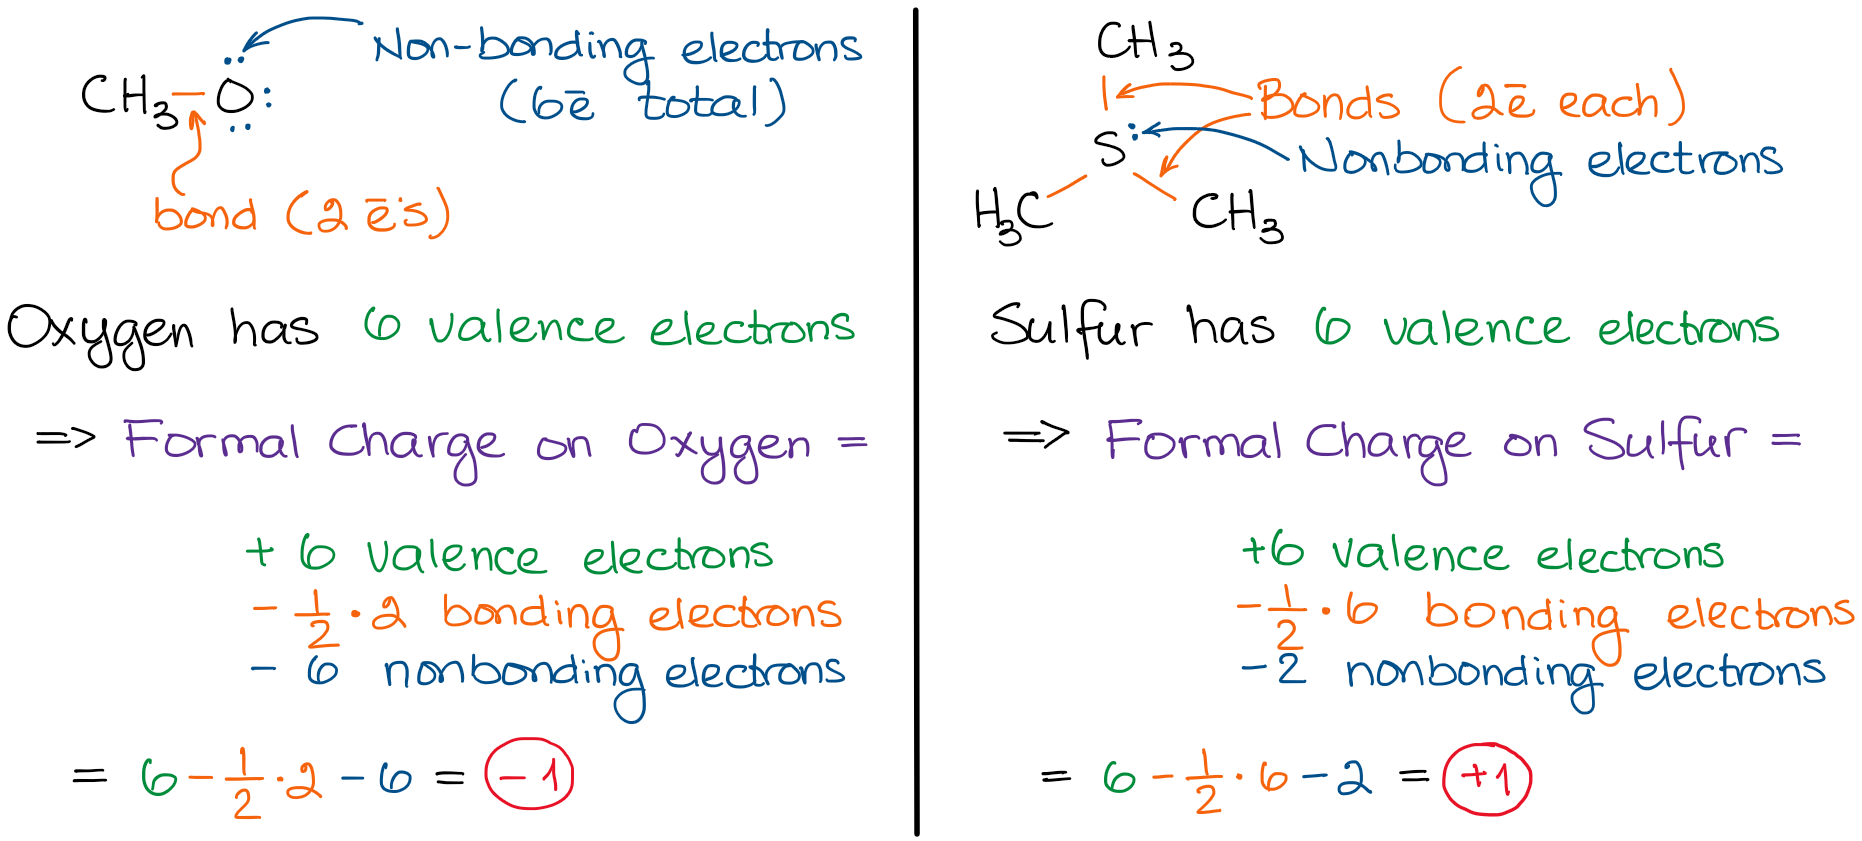 CH3–Ö:
Non-bonding electrons
(6ē total)
bond (2 ē's)
Oxygen has 6 valence electrons
=> Formal Charge on Oxygen =
+ 6 valence electrons
- 1/2 · 2 bonding electrons
- 6 nonbonding electrons
= 6 - 1/2 · 2 - 6 = -1
CH3
Bonds (2ē each)
S:
Nonbonding electrons
H3C
CH3
Sulfur has 6 valence electrons
=> Formal Charge on Sulfur =
+6 valence electrons
- 1/2 · 6 bonding electrons
-2 nonbonding electrons
= 6 - 1/2 · 6 - 2 = +1